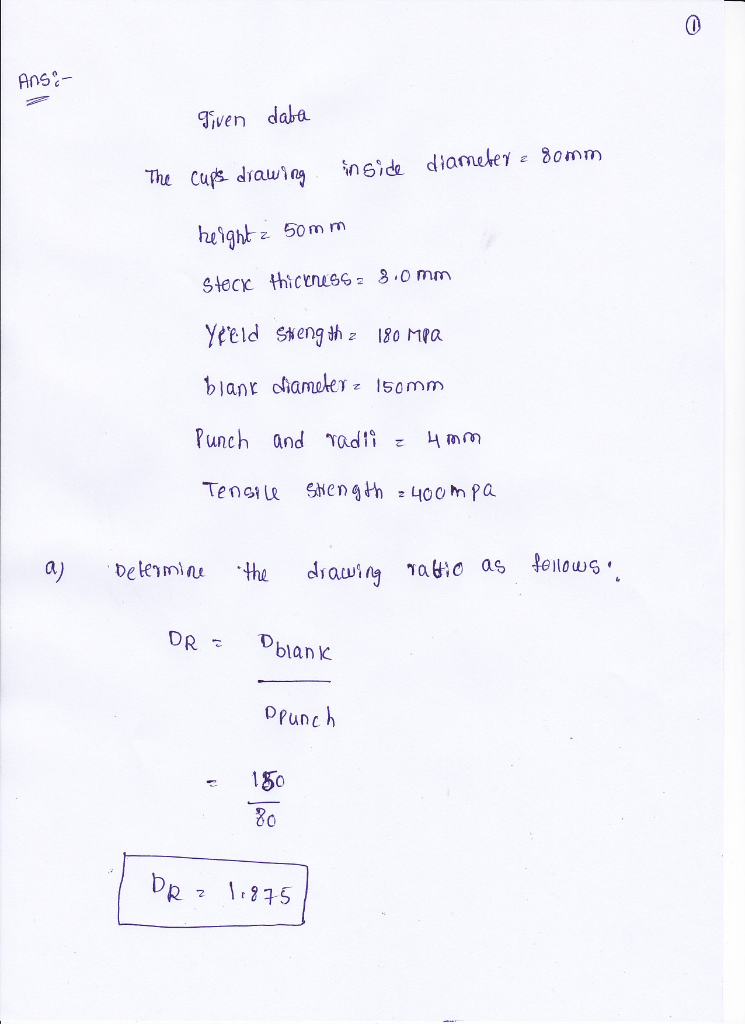 ①
Ans:-
Given data
The cups drawing inside diameter = 80mm
height = 50mm
stock thickness = 3.0mm
Yield strength = 180 MPa
blank diameter = 150mm
Punch and radii = 4mm
Tensile strength = 400mpa
a) Determine the drawing ratio as follows:
DR = Dblank
Dpunch
= 150
80
DR = 1.875